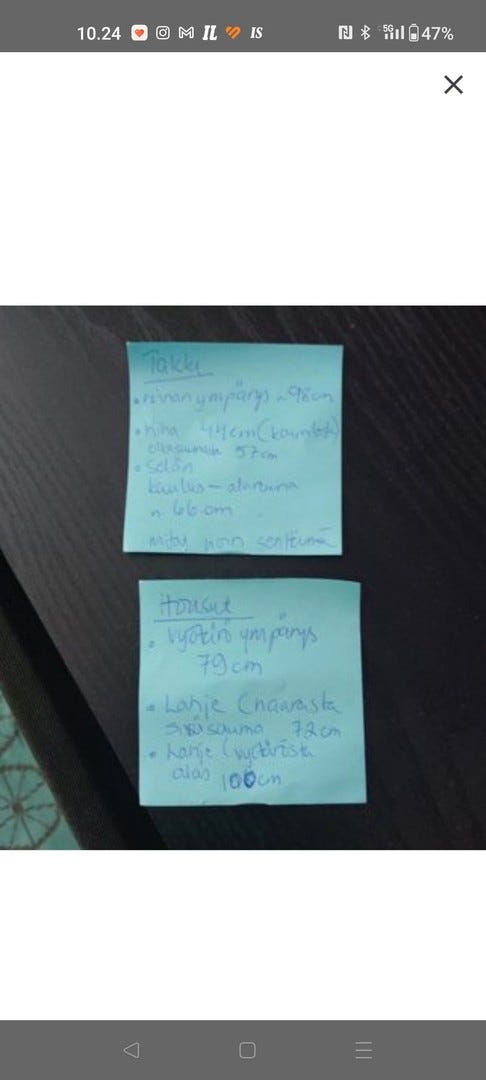 10.24 IL IS 5G 47%
Takki
• rinnan ympärys n 98cm
• hiha 44cm (kainalosta)
olkasaumasta 57cm
• Selän
kaulus - alareuna
n. 66 cm
mitat noin senteinä
Housut
• vyötärö ympärys
79cm
• Lahje (haarasta
sisäsauma 72cm
• Lahje (vyötäröstä
alas 100cm